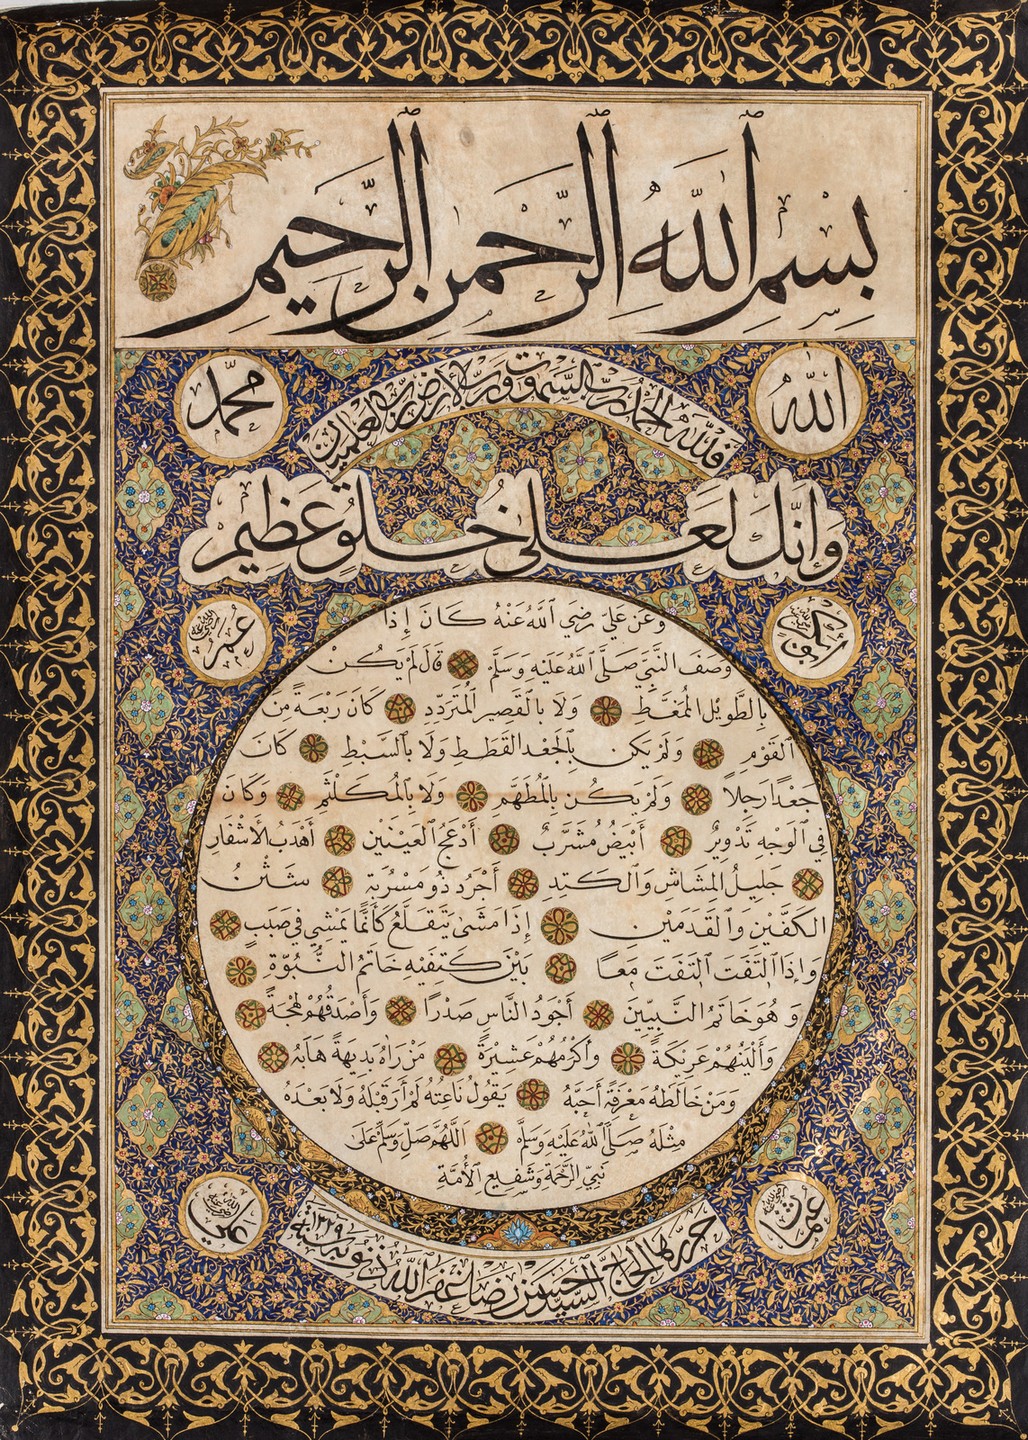 بِسْمِ اللّٰهِ الرَّحْمٰنِ الرَّحِيمِ
اللّٰهُ
محمّد
فلله الحمد رب السموت ورب الارض رب العلمين
وَاِنَّكَ لَعَلٰى خُلُقٍ عَظِيمٍ
ابو بكر رضي الله عنه
عُمر رضي الله عنه
وَعَنْ عَلِيٍّ رَضِيَ اللّٰهُ عَنْهُ كَانَ إِذَا
وَصَفَ النَّبِيَّ صَلَّى اللّٰهُ عَلَيْهِ وَسَلَّمَ قَالَ لَمْ يَكُنْ
بِالطَّوِيْلِ الْمُمَغَّطِ وَلَا بِالْقَصِيرِ الْمُتَرَدِّدِ كَانَ رَبْعَةً مِنَ
الْقَوْمِ وَلَمْ يَكُنْ بِالْجَعْدِ الْقَطَطِ وَلَا بِالسَّبْطِ كَانَ
جَعْدًا رَجِلًا وَلَمْ يَكُنْ بِالْمُطَهَّمِ وَلَا بِالْمُكَلْثَمِ وَكَانَ
فِي الْوَجْهِ تَدْوِيرٌ أَبْيَضُ مُشَرَّبٌ أَدْعَجُ الْعَيْنَيْنِ أَهْدَبُ الْأَشْفَارِ
جَلِيلُ الْمُشَاشِ وَالْكَتَدِ أَجْرَدُ ذُو مَسْرُبَةٍ شَثْنُ
الْكَفَّيْنِ وَالْقَدَمَيْنِ إِذَا مَشَىٰ يَتَقَلَّعُ كَأَنَّمَا يَمْشِي فِي صَبَبٍ
وَإِذَا الْتَفَتَ الْتَفَتَ مَعًا بَيْنَ كَتِفَيْهِ خَاتَمُ النُّبُوَّةِ
وَهُوَ خَاتَمُ النَّبِيِّينَ أَجْوَدُ النَّاسِ صَدْرًا وَأَصْدَقُهُمْ لَهْجَةً
وَأَلْيَنُهُمْ عَرِيكَةً وَأَكْرَمُهُمْ عَشِيرَةً مَنْ رَاٰهُ بَدِيهَةً هَابَهُ
وَمَنْ خَالَطَهُ مَعْرِفَةً أَحَبَّهُ يَقُولُ نَاعِتُهُ لَمْ أَرَ قَبْلَهُ وَلَا بَعْدَهُ
مِثْلَهُ صَلَّى اللّٰهُ عَلَيْهِ وَسَلَّمَ اَللّٰهُمَّ صَلِّ وَسَلِّمْ عَلَى
نَبِيِّ الرَّحْمَةِ وَشَفِيعِ الْأُمَّةِ
عثمان رضي الله عنه
علي رضي الله عنه
حررها الحاج السيد حسن رضا غفر الله ذنوبه سنة ١٣٢٩